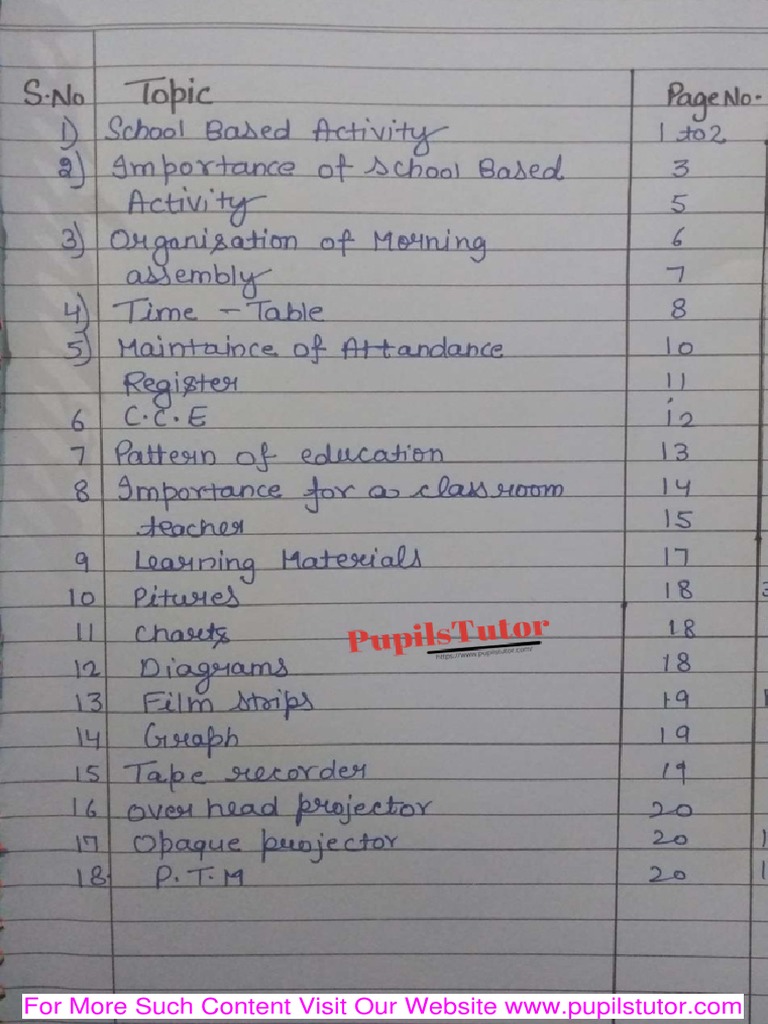 S.No Topic Page No.
1) School Based Activity 1 to 2
2) Importance of School Based 3
Activity 5
3) Organisation of Morning 6
assembly 7
4) Time - Table 8
5) Maintaince of Attandance 10
Register 11
6 C.C.E 12
7 Pattern of education 13
8 Importance for a classroom 14
teacher 15
9 Learning Materials 17
10 Pitures 18
11 Charts 18
PupilsTutor
https://www.pupilstutor.com/
12 Diagrams 18
13 Film strips 19
14 Graph 19
15 Tape recorder 19
16 over head projector 20
17 Opaque projector 20
18 P.T.M 20
For More Such Content Visit Our Website www.pupilstutor.com